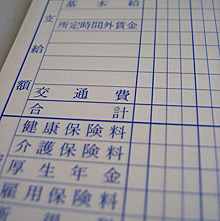 基本給
支
所定時間外賃金
給
額
交通費
合計
健康保険料
介護保険料
厚生年金
雇用保険料